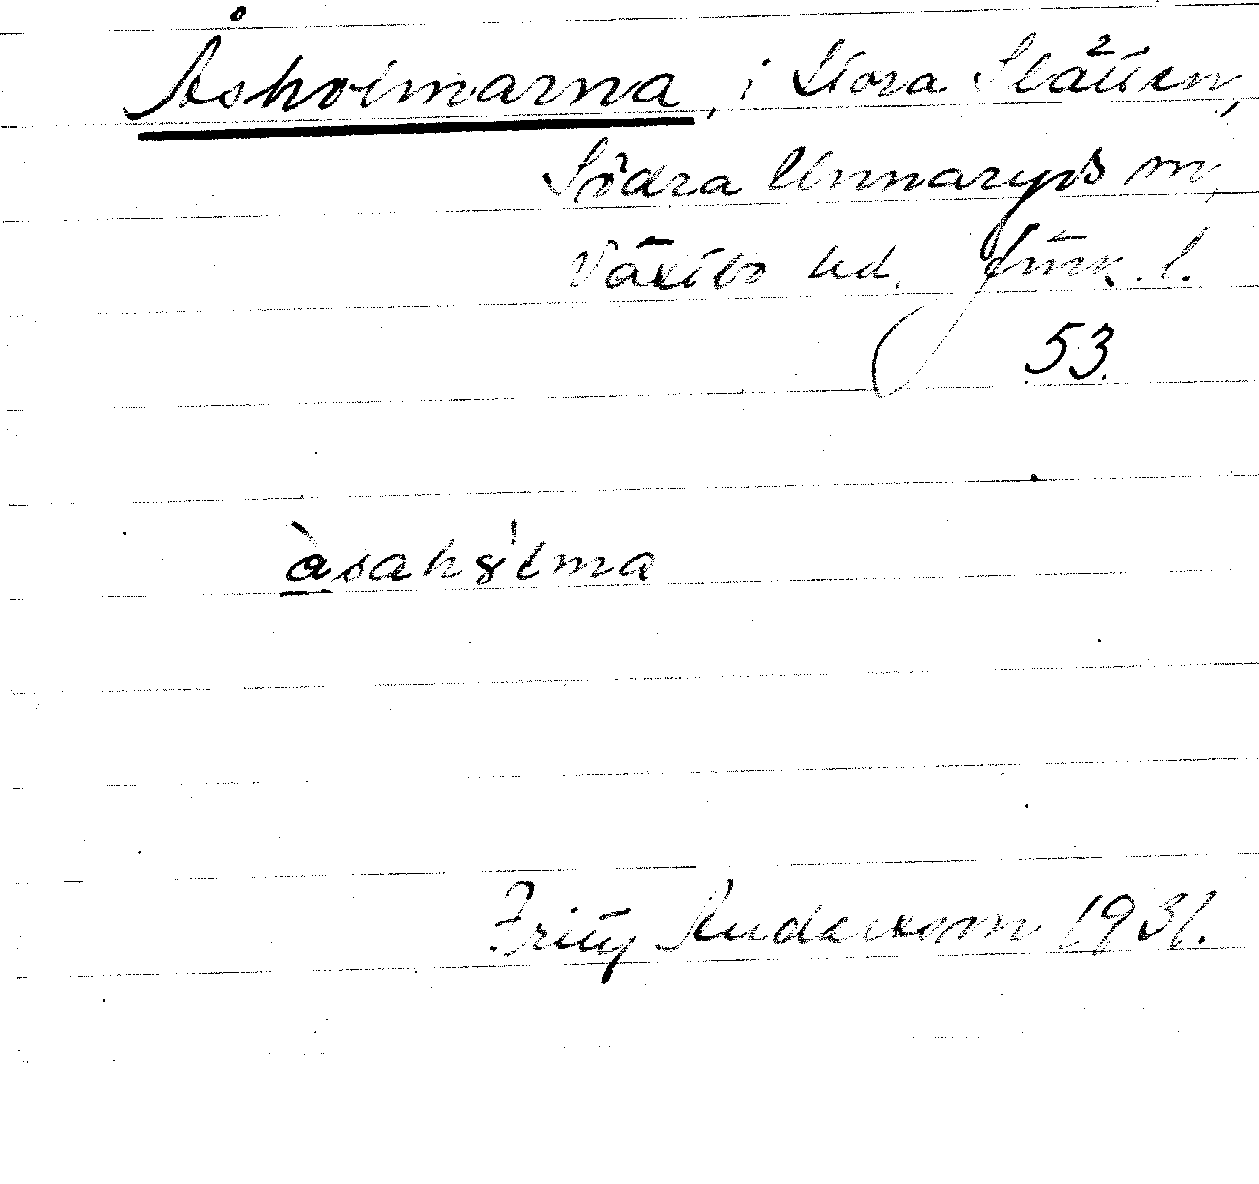 Åsholmarna, i Stora Slätten,
Södra Unnaryds sn,
Västbo hd. Jönk. l.
53.
à̲sahɤ̍lma
Fritz Andersson 1931.